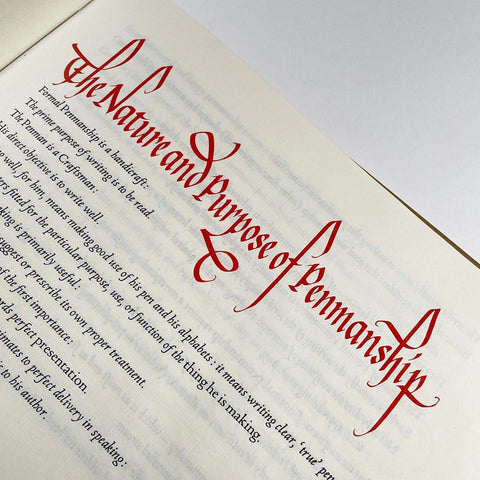 The Nature and Purpose of Penmanship
Formal Penmanship is a handicraft:
The prime purpose of writing is to be read.
The Penman is a Craftsman:
His direct objective is to write well.
well for him, means making good use of his pen and his alphabets: it means writing clear, 'true' pen
fitted for the particular purpose, use, or function of the thing he is making.
is primarily useful:
suggest or prescribe its own proper treatment.
of the first importance:
perfect presentation.
to perfect delivery in speaking:
is to his author.